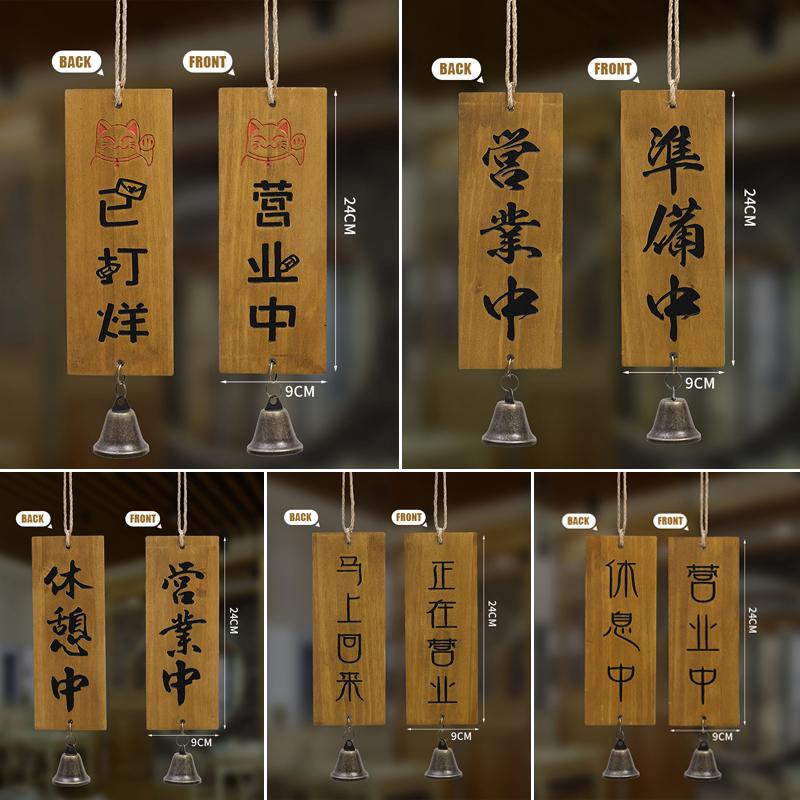 BACK
FRONT
已打烊
营业中
24CM
9CM
BACK
FRONT
営業中
準備中
24CM
9CM
BACK
FRONT
休憩中
営業中
24CM
9CM
BACK
FRONT
马上回来
正在营业
24CM
9CM
BACK
FRONT
休息中
营业中
24CM
9CM